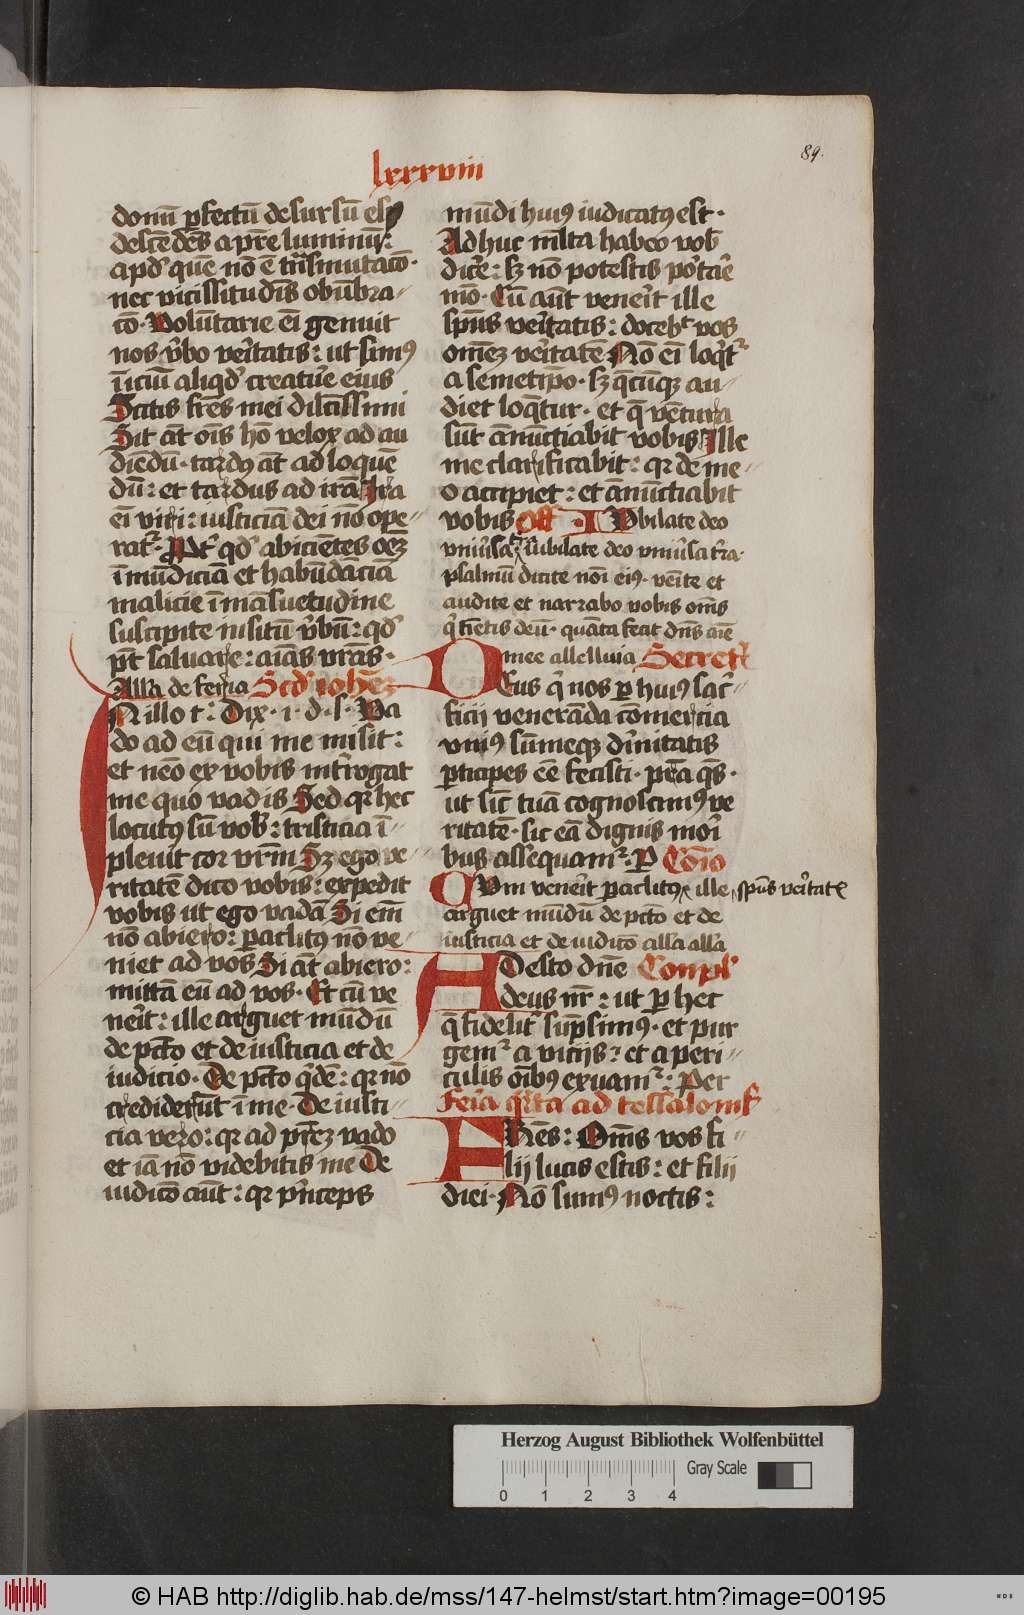 lxxxviii
89.
donū ꝑfectū desursū est
descēdēs a pr̄e luminū:
apd' quē nō ē trāsmutacō·
nec vicissitudīs obūbra-
cō· Volūtarie eī genuit
nos v̓bo veritatis: ut simꝰ
īiciū aliqd' creature eius
Scitis fr̄es mei dilc̄issimi
Sit āt oīs hō velox ad au
diēdū· tardꝰ āt ad loquē
dū: et tardus ad irā Ira
eī viri: iusticiā dei nō ope-
rat᷑· Ppt̓ qd' abiciētes oēʒ
īmūdiciā et habūdāciā
malicie ī māsuetudine
suscipite īsitū v̓bū: qd'
pt̄ saluare: aīas vr̄as·
Alla de feria Scd' ioheʒ
In illo t: Dix· i· d· s· Va
do ad eū qui me misit:
et nēo ex vobis int̓rogat
me quo vadis Sed qr hec
locutꝰ sū vob: tristicia ī-
pleuit cor vr̄m Sʒ ego ve-
ritatē dico vobis: expedit
vobis ut ego vadā Si em̄
nō abiero: paclitꝰ nō ve-
niet ad vos Si āt abiero:
mittā eū ad vos· Et cū ve
neīt: ille arguet mūdū
de pctō et de iusticia et de
iudicio· De pctō qdē: qr nō
crediderūt ī me· De iusti-
cia vero: qr ad pr̄eʒ vado
et iā nō videbitis me De
iudicō aūt: qr p̓nceps
mūdi huiꝰ iudicatꝰ est·
Adhuc ml̄ta habeo vob
dic̓e: sʒ nō potestis po̓tar̄e
mō· Cū aūt veneīt ille
sp̄us veītatis: doceb̓t vos
om̄eʒ veītatē Nō eī loq̓t᷑
a semetip̄o· sʒ q̄cūqʒ au-
diet loq̄tur· et q̄ vētura
sūt ānūctiabit vobis Ille
me clarificabit: qr de me-
o accipiet: et ānūctiabit
vobis Off Iubilate deo
vniūsa t̓ Iubilate deo vniūsa tr̄a·
psalmū dicite noī eiꝰ· venite et
audite et narrabo vobis om̄s
q̓ tīetis deū· quāta fecit dn̄s aīe
mee allelluia Secret᷑
Deus q̓ nos ꝑ huiꝰ sac̓-
ficij venerāda cōmercia
vniꝰ sūmeqʒ diīnitatis
ꝑticipes ee fecisti· p̄ta q̄s·
ut sic̄ tuā cognoscimꝰ ve
ritatē· sic eā dignis mori
bus assequam᷑· P Cōio
Cum veneīt paclitꝰ ille sp̄us veītatꝭ
arguet mūdū de pctō et de
iusticia et de iudicō alla alla
Adesto dn̄e Compl
deus nr̄: ut ꝑ hec
q̄ fidelit̓ sūpsimꝰ· et pur
gem᷑ a vicijs: et a peri-
culis oībꝰ exuam᷑: Per
Feria q̓rta ad tessalonic̄
Fr̄es: Om̄s vos fi-
lij lucis estis: et filij
diei· Nō sumꝰ noctis:
Herzog August Bibliothek Wolfenbüttel
Gray Scale
0 1 2 3 4
© HAB http://diglib.hab.de/mss/147-helmst/start.htm?image=00195